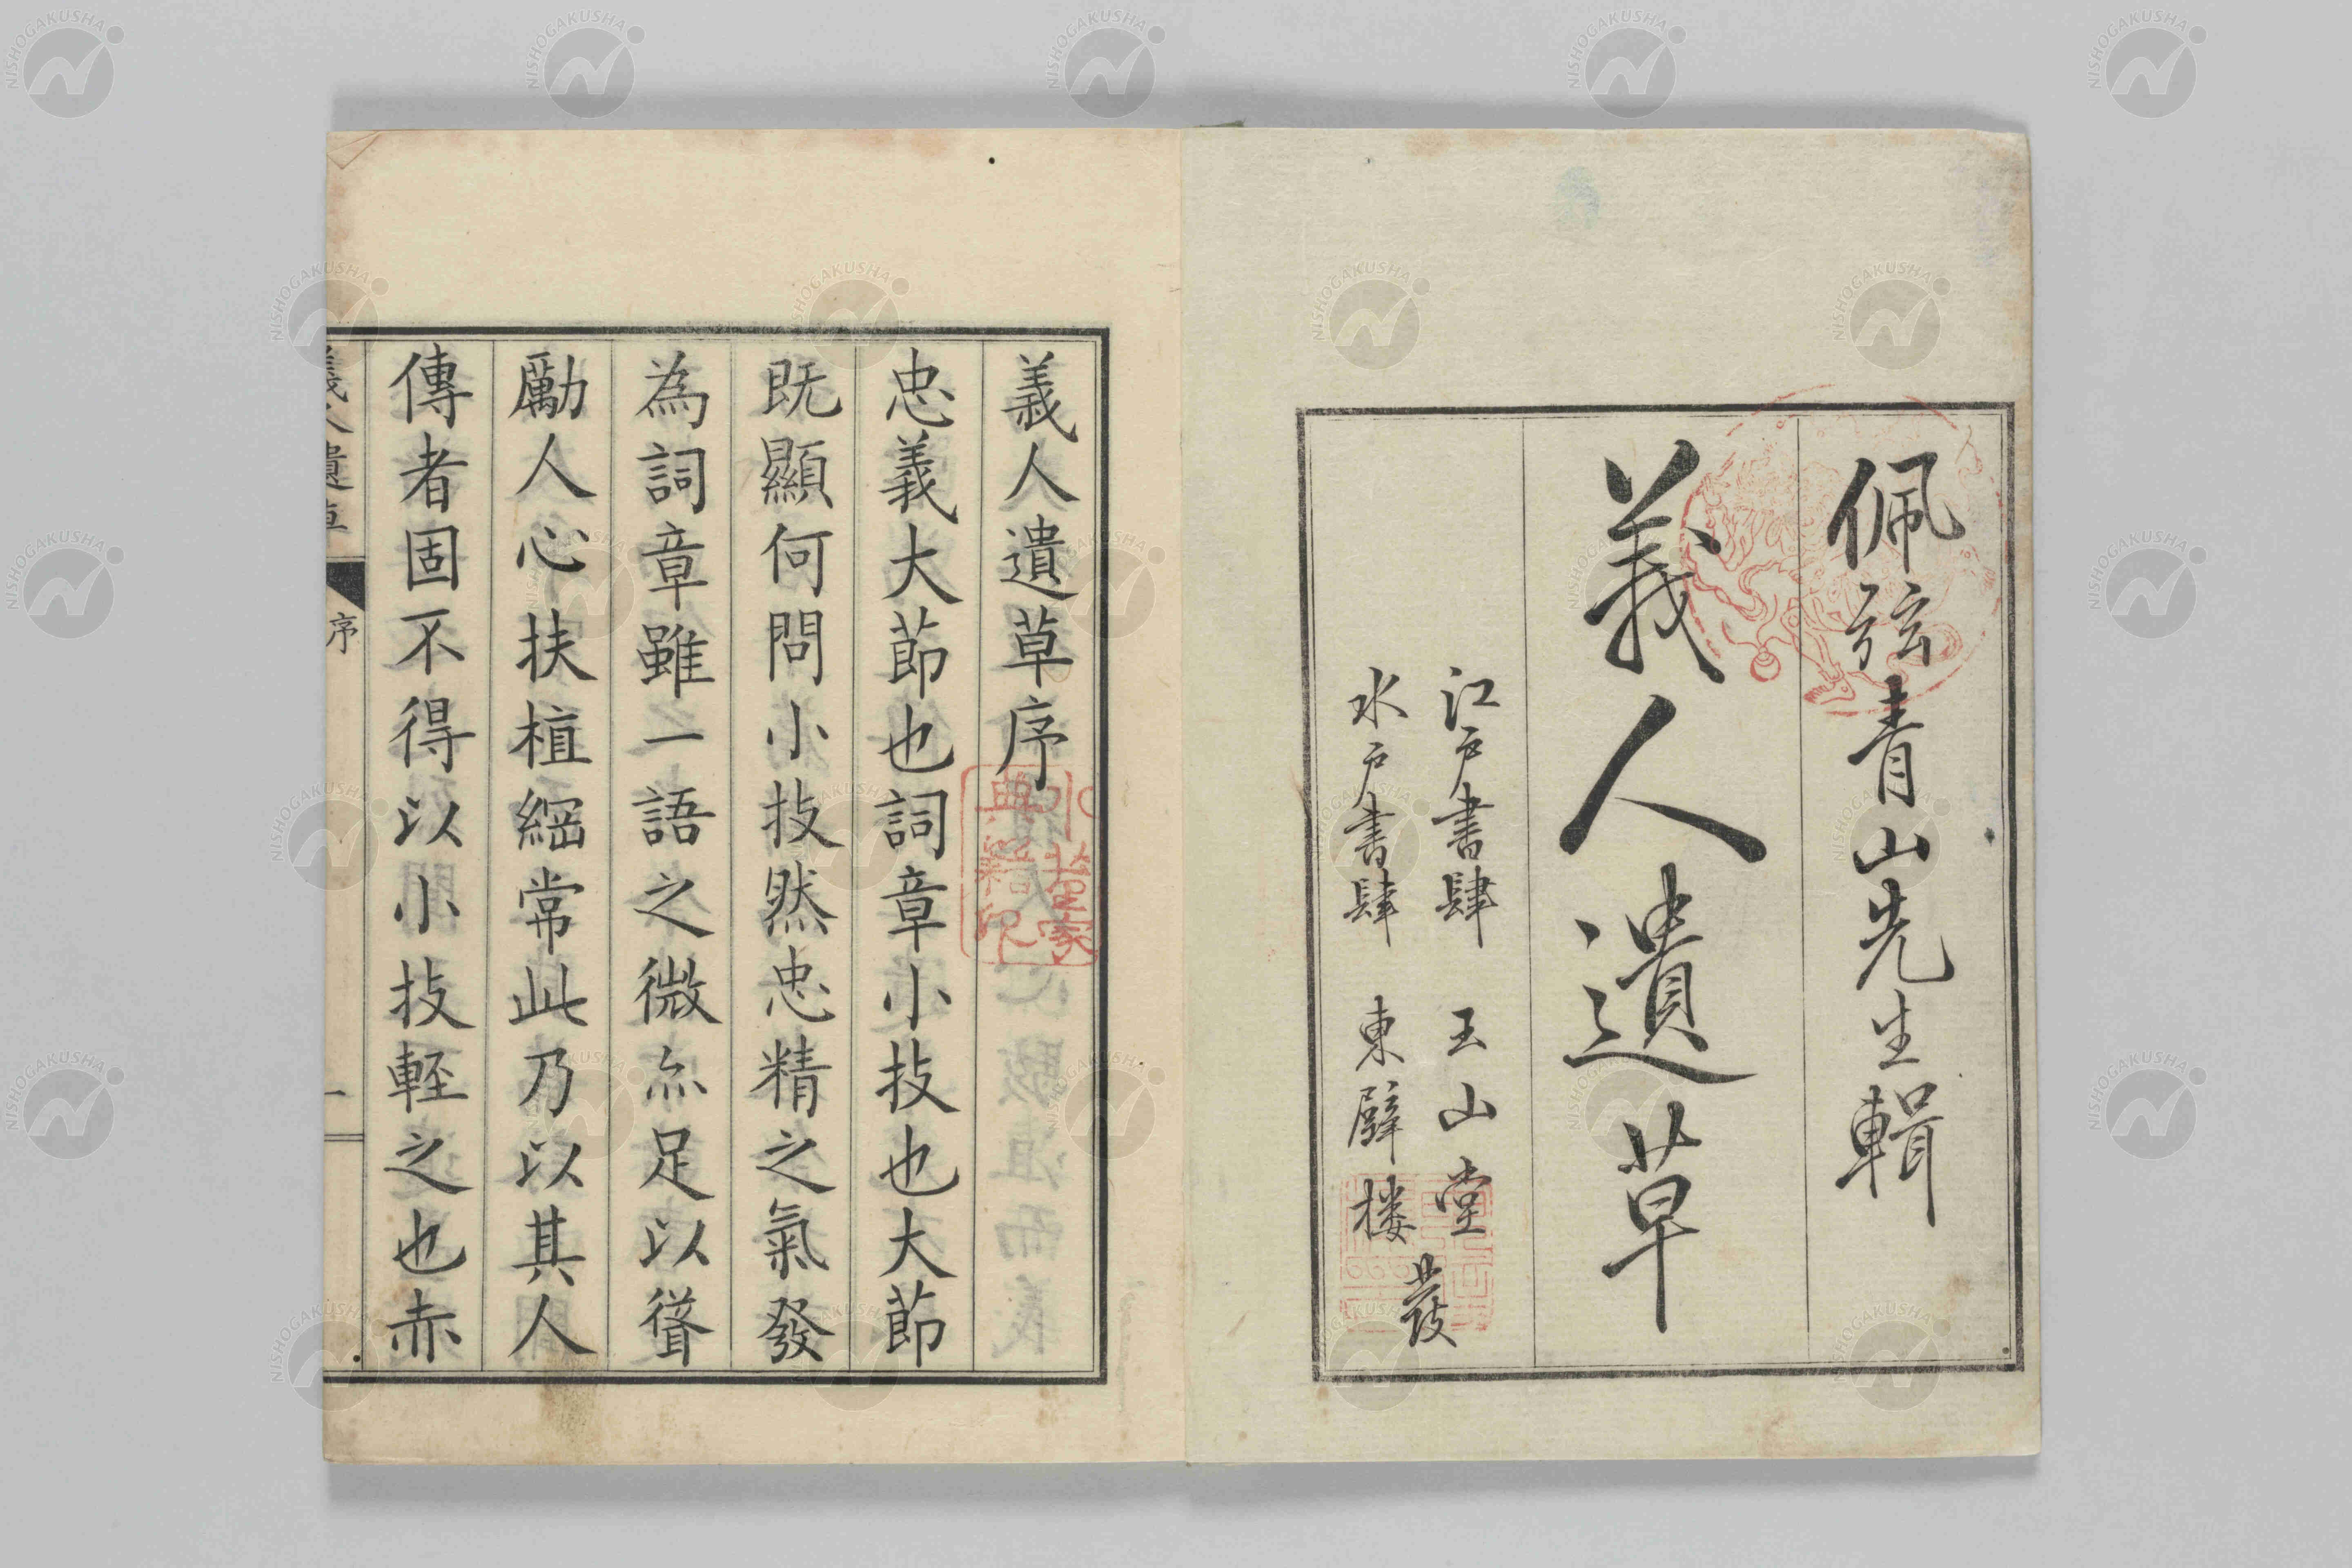 佩弦青山先生輯
義人遺草
江戶書肆 玉山堂
水戶書肆 東壁楼
發
義人遺草序
忠義大節也詞章小技也大節
既顯何問小技然忠精之氣發
為詞章雖一語之微亦足以聳
勵人心扶植綱常此乃以其人
傳者固不得以小技輕之也赤
義人遺草
序
一
NISHOGAKUSHA